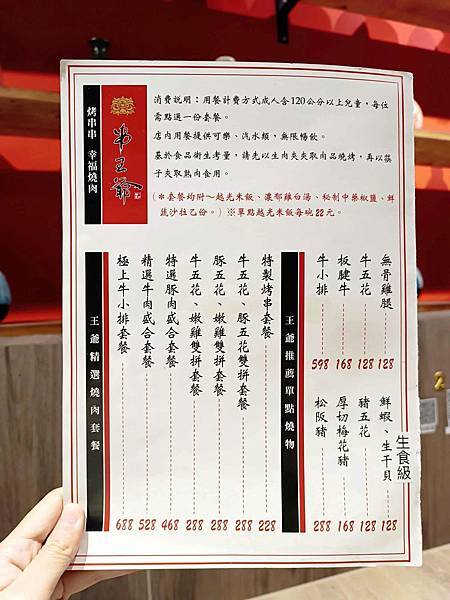 烤串串 幸福燒肉
串王爺
消費說明：用餐計費方式成人含120公分以上兒童，每位
需點選一份套餐。
店內用餐提供可樂、汽水類，無限暢飲。
基於食品衛生考量，請先以生肉夾夾取肉品燒烤，再以筷
子夾取熟肉食用。
(＊套餐均附～越光米飯、濃郁雞白湯、秘制中藥椒鹽、鮮
蔬沙拉乙份。) ※單點越光米飯每碗22元。
王爺推薦單點燒物
無骨雞腿 128
牛五花 128
板腱牛 168
牛小排 598
鮮蝦、生干貝 128
生食級
豬五花 128
厚切梅花豬 168
松阪豬 288
王爺精選燒肉套餐
特製烤串套餐 228
牛五花、豚五花雙拼套餐 288
豚五花、嫩雞雙拼套餐 288
牛五花、嫩雞雙拼套餐 288
特選豚肉盛合套餐 468
精選牛肉盛合套餐 528
極上牛小排套餐 688